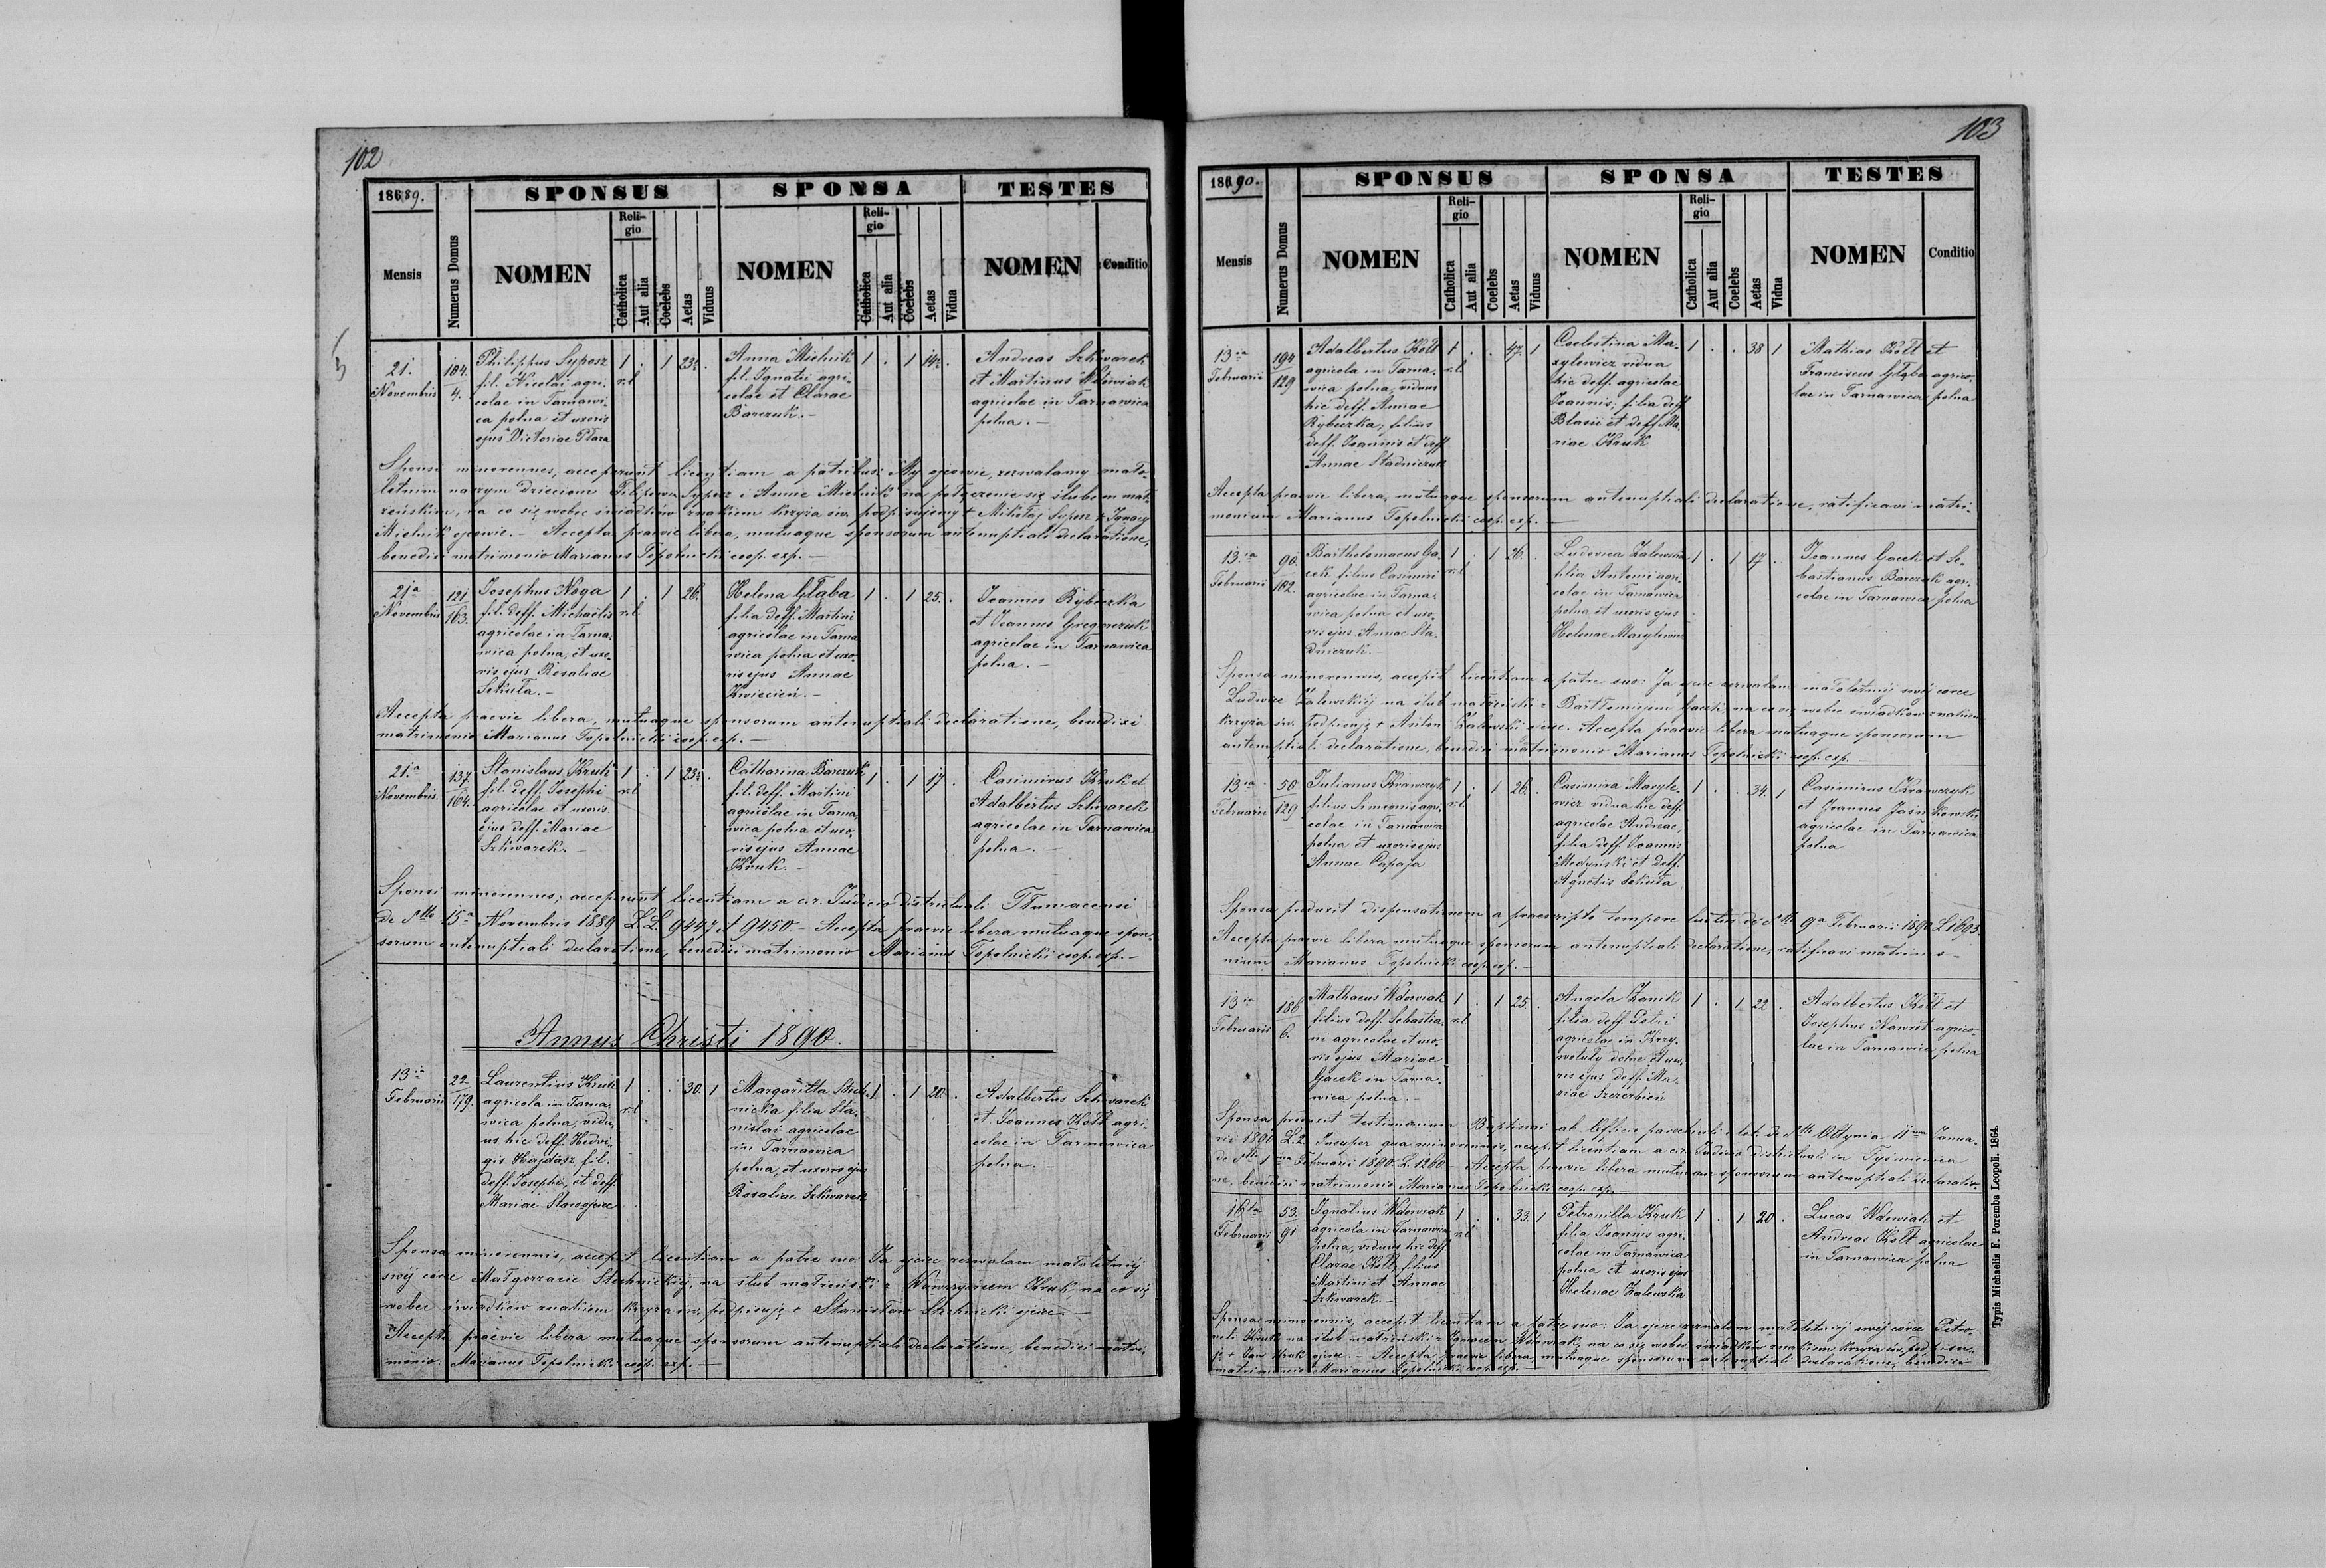 102
18689.
SPONSUS
SPONSA
TESTES
Mensis
Numerus Domus
NOMEN
Religio
Catholica
Aut alia
Coelebs
Aetas
Viduus
NOMEN
Religio
Catholica
Aut alia
Coelebs
Aetas
Vidua
NOMEN
Conditio
21.
Novembris
184.
4.
Philippus Syposz
fil. Nicolai agri-
colae in Tarnawi-
ca polna et uxoris
ejus Victoriae Plaza
1 . 1 23½ .
r.l
Anna Mielnik
fil. Ignatii agri-
colae et Clarae
Barczuk.-
1 . 1 14½ .
Andreas Szkwarek
et Martinus Wdowiak
agricolae in Tarnawica
polna.-
Sponsi minorennes, acceperunt licentiam a patribus: My ojcowie, zezwalamy mało-
letnim naszym dzieciom Filipowi Syposz i Annie Mielnik na połączenie się ślubem mał-
żeńskim, na co się wobec świadków znakiem krzyża św. podpisujemy + Mikołaj Syposz + Ignacy
Mielnik ojcowie.- Accepta praevie libera, mutuaque sponsorum antenuptiali declaratione,
benedixi matrimonio Marianus Topolnicki coop. exp.-
21a
Novembris
121
163.
Josephus Noga
fil. deff. Michaelis
agricolae in Tarna-
wica polna, et uxo-
ris ejus Rosaliae
Sekuła.-
1 . 1 26. .
r.l
Helena Głąba
filia deff. Martini
agricolae in Tarna
wica polna et uxo-
ris ejus Annae
Kwiecień.-
1 . 1 25. .
Joannes Rybeczka
et Joannes Gregorczuk
agricolae in Tarnawica
polna.-
Accepta praevie libera, mutuaque sponsorum antenuptiali declaratione, benedixi
matrimonio Marianus Topolnicki coop. exp.-
21.a
Novembris.
137.
164.
Stanislaus Kruk
fil. deff. Josephi
agricolae et uxoris
ejus deff. Mariae
Szkwarek.-
1 . 1 23½ .
r.l
Catharina Barczuk
fil. deff. Martini
agricolae in Tarna-
wica polna et uxo-
ris ejus Annae
Kruk.-
1 . 1 17 .
Casimirus Kruk et
Adalbertus Szkwarek
agricolae in Tarnawica
polna.-
Sponsi minorennes; acceperunt licentiam a c.r. Judicio districtuali Tłumacensi
de dtto 15a Novembris 1889 L.L. 9447 et 9450.- Accepta praevie libera mutuaque spon-
sorum antenuptiali declaratione, benedixi matrimonio Marianus Topolnicki coop. exp.-
Annus Christi 1890.
13ia
Februarii
22
179.
Laurentius Kruk
agricola in Tarna-
wica polna, vidu-
us hic deff. Hedvi-
gis Hajdasz fil.
deff. Josephi, et deff.
Mariae
1 . . 30. 1
r.l
Margaritta Stech-
nicka filia Sta-
nislai agricolae
in Tarnawica
polna, et uxoris ejus
Rosaliae Szkwarek
1 . 1 20. .
Adalbertus Schwarek
et Joannes Kołt agri-
colae in Tarnawica
polna.-
Sponsa minorennis, accepit licentiam a patre suo: Ja ojciec zezwalam małoletniéj
swéj córce Małgorzacie Stechnickiéj, na ślub małżeński z Wawrzyńcem Kruk, na co się
wobec świadków znakiem krzyża św. podpisuję + Stanisław Stechnicki ojciec.-
Accepta praevie libera mutuaque sponsorum antenuptiali declaratione, benedixi matri-
monio. Marianus Topolnicki coop. exp.-
103
18690.
SPONSUS
SPONSA
TESTES
Mensis
Numerus Domus
NOMEN
Religio
Catholica
Aut alia
Coelebs
Aetas
Viduus
NOMEN
Religio
Catholica
Aut alia
Coelebs
Aetas
Vidua
NOMEN
Conditio
13ia
Februarii
194
129
Adalbertus Kołt
agricola in Tarna-
wica polna, viduus
hic deff. Annae
Rybeczka, filius
deff. Joannis et deff
Annae Stadniczuk
1 . . 47. 1
r.l
Coelestina Ma-
zylewicz vidua
hic deff. agricolae
Joannis; filia deff
Blasii et deff. Ma-
riae Kruk
1 . . 38 1
Mathias Kołt et
Franciscus Głąba agrico-
lae in Tarnawica polna
Accepta praevie libera, mutuaque sponsorum antenuptiali declaratione, ratificavi matri-
monium Marianus Topolnicki coop. exp.-
13.ia
Februarii
90.
182.
Bartholomaeus Ga-
cek filius Casimiri
agricolae in Tarna-
wica polna et uxo-
ris ejus Annae Sta-
dniczuk.
1 . 1 26. .
r.l
Ludovica Zalewska
filia Antonii agri-
colae in Tarnawica
polna et uxoris ejus
Helenae Mazylewicz
1 . 1 17 .
Joannes Gacek et Se-
bastianus Barczuk agri-
colae in Tarnawica polna
Sponsa minorennis, accepit licentiam a patre suo: Ja ojciec zezwalam małoletniéj swéj córce
Ludwice Zalewskiéj na ślub małżeński z Bartłomiejem Gacek, na co się wobec świadków znakiem
krzyża św. podpisuję + Anton Zalewski ojciec. Accepta praevie libera mutuaque sponsorum
antenuptiali declaratione, benedixi matrimonio Marianus Topolnicki coop. exp.-
13ia
Februarii
50
129
Julianus Krawczyk
filius Simeonis agri-
colae in Tarnawica
polna et uxoris ejus
Annae Capaja
1 . 1 26. .
r.l
Casimira Mazyle-
wicz vidua hic deff
agricolae Andreae,
filia deff. Joannis
Medyński et deff.
Agnetis Sekuła
1 . . 34. 1
Casimirus Krawczyk
et Joannes Jasinkowski
agricolae in Tarnawica
polna
Sponsa produxit dispensationem a praescripto tempore luctus de dtto 9a Februarii 1890 L 1693.
Accepta praevie libera mutuaque sponsorum antenuptiali declaratione, ratificavi matrimo-
nium Marianus Topolnicki coop. exp.-
13ia
Februarii
186
6.
Mathaeus Wdowiak
filius deff. Sebastia-
ni agricolae et uxo-
ris ejus Mariae
Gacek in Tarna-
wica polna.-
1 . 1 25. .
r.l
Angela Zanik
filia deff. Petri
agricolae in Krzy-
wotuły dolne et uxo-
ris ejus deff. Ma-
riae Szczerbień
1 . 1 22 .
Adalbertus Kołt et
Josephus Nawrot agrico-
lae in Tarnawica polna
Sponsa produxit testimonium Baptismi ab Officio parochiali r. lat. de dtto Ottynia 11ma Janua-
rii 1890 L 2. Insuper qua minorennis, accepit licentiam a c.r. Judicio districtuali in Tyśmienica
de dtto 1ma Februarii 1890. L. 1260.- Accepta praevie libera mutuaque sponsorum antenuptiali declaratio-
ne, benedixi matrimonio Marianus Topolnicki coop. exp.-
16ta
Februarii
53.
91
Ignatius Wdowiak
agricola in Tarnawica
polna, viduus hic deff.
Clarae Kołt, filius
Martini et Annae
Szkwarek.-
1 . . 33. 1
r.l
Petronilla Kruk
filia Joannis agri-
colae in Tarnawica
polna et uxoris ejus
Helenae Zalewska
1 . 1 20 .
Lucas Wdowiak et
Andreas Kołt agricolae
in Tarnawica polna
Sponsa minorennis, accepit licentiam a patre suo: Ja ojciec zezwalam małoletniéj swéj córce Petro-
neli Kruk na ślub małżeński z Ignacem Wdowiak, na co się wobec świadków znakiem krzyża św. podpisu-
ję + Jan Kruk ojciec.- Accepta praevie libera mutuaque sponsorum antenuptiali declaratione, benedixi
matrimonio Marianus Topolnicki coop. exp.-
Typis Michaelis F. Poremba Leopoli. 1864.